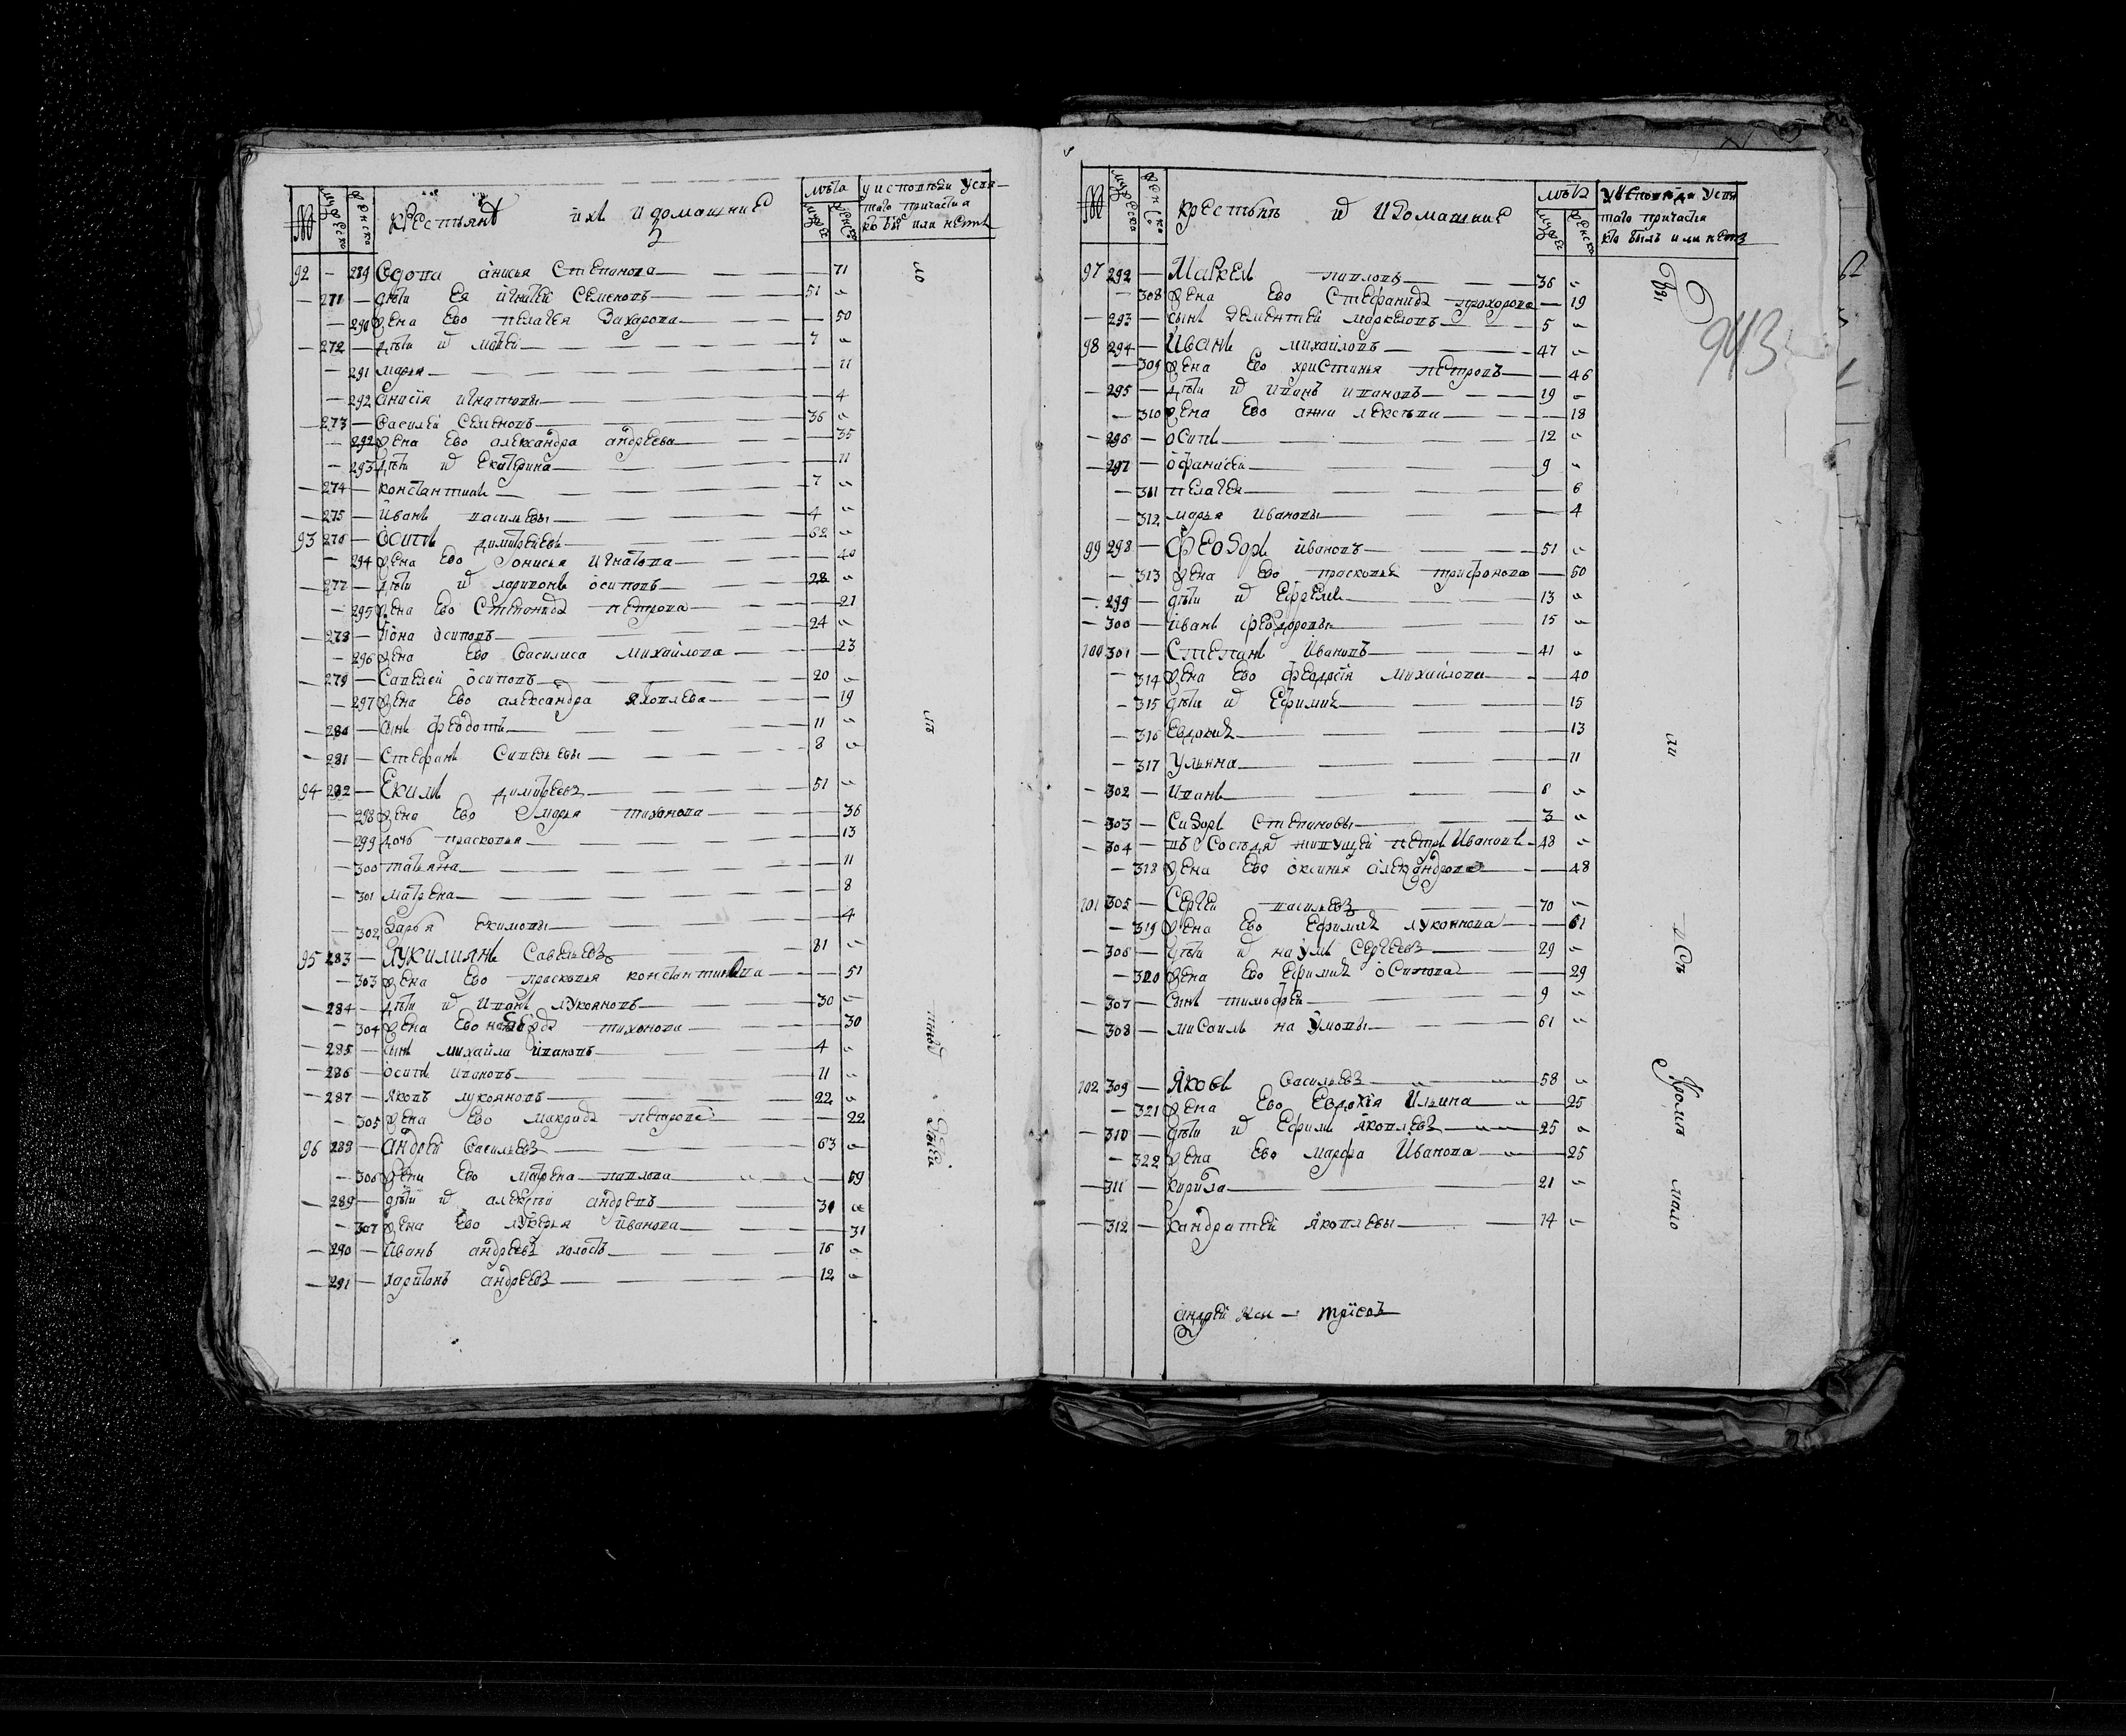 № мужеско женско крестьянѣ ихъ и домашние лѣта у исповеди у свя
таго причастиа
кто былъ или нетъ
92 — 289 вдова анисья степанова — 71
— 271 — дѣти ея игнатей семеновъ — 51
— 290 жена ево пелагея захарова — 50
— 272 — дѣти их матвей — 7
— 291 марья — 11
— 292 анисія игнатовы — 4
— 273 — василей семеновъ — 36
— 292 жена ево александра андреева — 35
— 293 дѣти их екатерина — 11
— 274 — константинъ — 7
— 275 — иванъ васильевы — 4
93 276 — осипъ димитреевъ — 62
— 294 жена ево онисья игнатова — 40
— 277 — дѣти их ларивонъ осиповъ — 28
— 295 жена ево степанида петрова — 21
— 278 — иона осиповъ — 24
— 296 жена ево василиса михайлова — 23
— 279 — савелей осиповъ — 20
— 297 жена ево александра яковлева — 19
— 280 — сынъ феодотъ — 11
— 281 — стефанъ савельевы — 8
94 282 — екимъ димитреевъ — 51
— 298 жена ево марья тихонова — 36
— 299 дочь прасковья — 13
— 300 татьяна — 11
— 301 матрена — 8
— 302 дарья екимовы — 4
95 283 — лукилиянъ савельевъ — 81
— 303 жена ево прасковья константинова — 51
— 284 — дѣти их иванъ лукояновъ — 30
— 304 жена ево тихонова — 30
— 285 — сынъ михайла ивановъ — 4
— 286 — осипъ ивановъ — 11
— 287 — яковъ лукояновъ — 22
— 305 жена ево макрида петрова — 22
96 288 — андрей васильевъ — 63
— 306 жена ево матрена павлова — 59
— 289 — дѣти их алексей андреевъ — 31
— 307 жена ево лукерья иванова — 31
— 290 — иванъ андреевъ холостъ — 16
— 291 — харитонъ андреевъ — 12
№ мужеско женско крестьянъ их и домашние лѣта у исповеди у свя
таго причастиа
кто былъ или нетъ
943
97 292 — маркелъ павловъ — 36
— 308 жена ево стефанида прохорова — 19
— 293 — сынъ дементей маркеловъ — 5
98 294 — иванъ михайловъ — 47
— 309 жена ево христинья петровъ — 46
— 295 — дѣти их иванъ ивановъ — 19
— 310 жена ево анна лексѣева — 18
— 296 — осипъ — 12
— 297 — офанасей — 9
— 311 пелагея — 6
— 312 марья ивановы — 4
99 298 — феодоръ ивановъ — 51
— 313 жена ево прасковья трифонова — 50
— 299 — дѣти их ефремъ — 13
— 300 — иванъ феодоровы — 15
100 301 — степанъ ивановъ — 41
— 314 жена ево феодосія михайлова — 40
— 315 дѣти их ефимия — 15
— 316 евдокия — 13
— 317 ульяна — 11
— 302 — иванъ — 8
— 303 — сидоръ степановы — 3
— 304 — въ соседяхъ живущей петръ ивановъ — 48
— 318 жена ево оксинья александрова — 48
101 305 — сергей васильевъ — 70
— 319 жена ево ефимия луконнова — 61
— 306 — дѣти их наумъ сергеевъ — 29
— 320 жена ево ефимия осипова — 29
— 307 — сынъ тимофей — 9
— 308 — мисаилъ наумовы — 61
102 309 — яковъ васильевъ — 58
— 321 жена ево евдокія ильина — 25
— 310 — дѣти их ефимъ яковлевъ — 25
— 322 жена ево марфа иванова — 25
— 311 — кирила — 21
— 312 — кандратей яковлевы — 14
вси
кроме мало
тныхъ детей